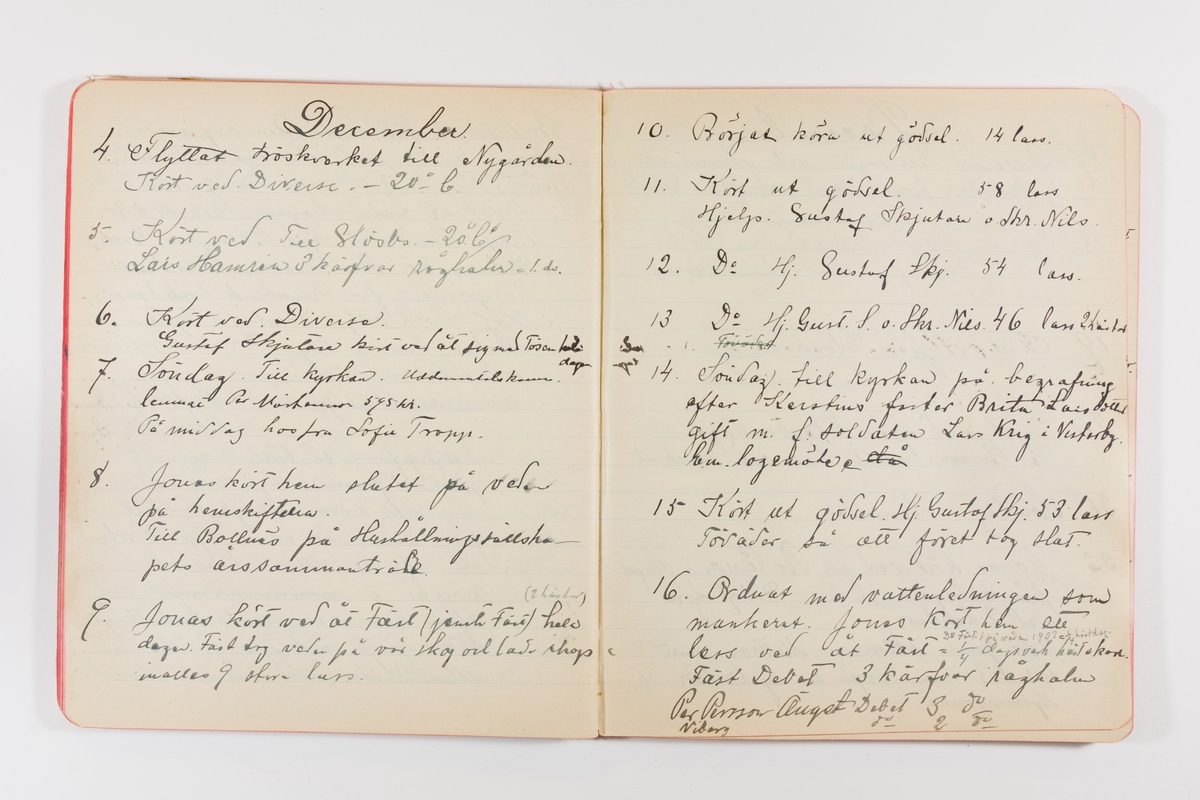 December.
4. Flyttat tröskverket till Nygården.
Kört ved. Diverse. – 20° C.
5. Kört ved. Till Slösbs. – 20° C°
Lars Hamrén 3 kärfvar råghalm = 1. do.
6. Kört ved. Diverse.
Gustaf Skjutare kört ved åt sig med Tösen hela dagen
7. Söndag. Till kyrkan.
Per Mårtensson 595 kr.
På middag hos fru Sofie Tropp.
8. Jonas kört hem slutet på veden
på hemskiftena.
Till Bollnäs på Hushållningssällska-
pets årssammanträde.
(2 hästar)
9. Jonas kört ved åt Fäst (jemte Fäst) hela
dagen. Fäst tog veden på vår skog och lade ihop
inalles 9 stora lass.
10. Börjat köra ut gödsel. 14 lass.
11. Kört ut gödsel. 58 lass
Hjelp. Gustaf Skjutare o. Skr. Nils.
12. D° Hj. Gustaf Skj. 54 lass.
13 D° Hj. Gust. S. o. Skr. Nils. 46 lass 2 hästar
Töväder
14. Söndag. till kyrkan på begrafning
efter Kerstins faster Brita Larsdotter
gift m. f. soldaten Lars Krig i Vesterby.
Em. logemöte
15 Kört ut gödsel. Hj. Gustaf Skj. 53 lass
Töväder så att föret tog slut.
16. Ordnat med vattenledningen som
mankerat. Jonas kört hem ett
lass ved åt Fäst = 1/4 dagsverk häst o karl.
Fäst Debet 3 kärfvar råghalm
Per Persson Änget Debet 3 do
Viberg do 2 do